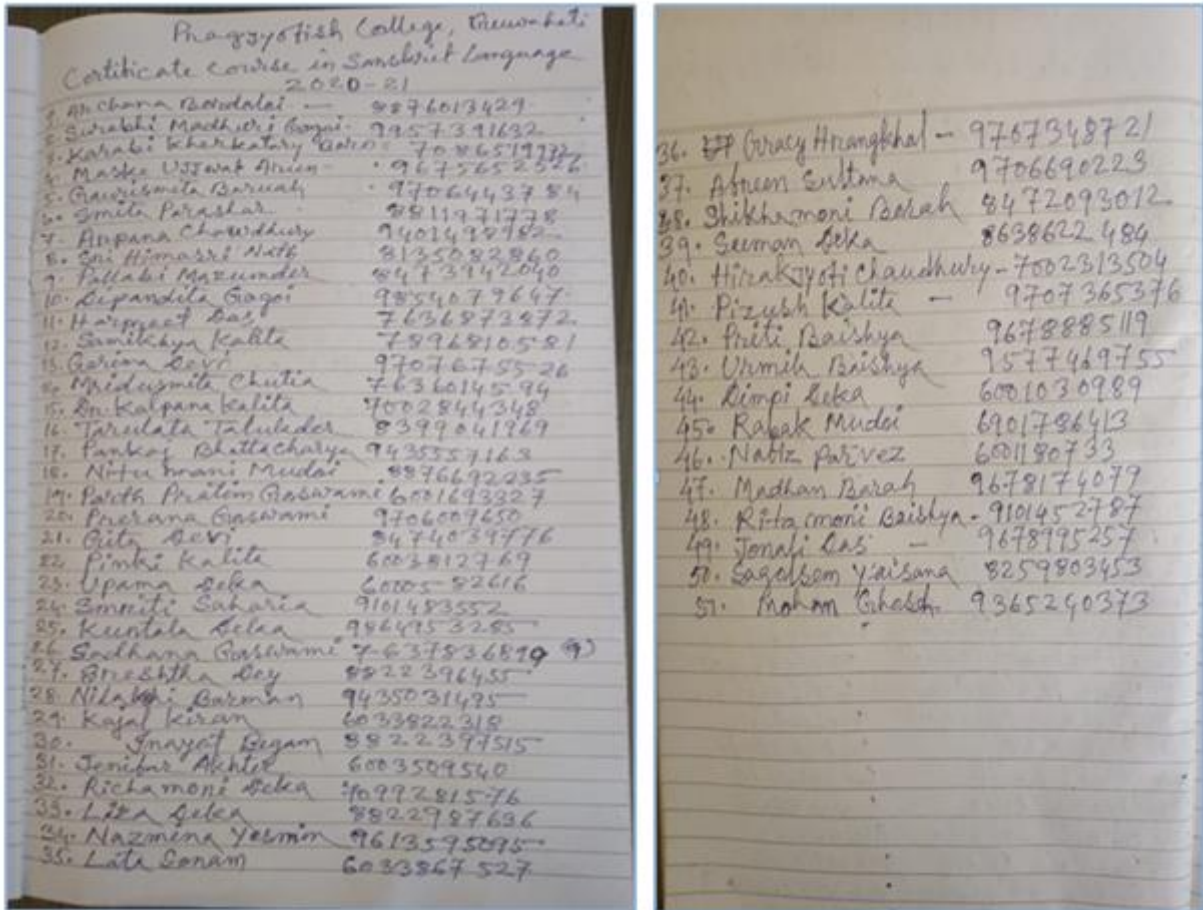 Pragjyotish College, Guwahati
Certificate course in Sanskrit Language
2020-21
1. Archana Bordalai — 8876013429
2. Surabhi Madhuri Gogoi - 9957391632
3. Karabi Kherkatary Boro -
4. Maske Ujjwal Arun -
5. Gaurismita Baruah - 9706443784
6. Smita Parashar 8811971778
7. Arpana Chowdhury
8. Sri Himasri Nath 8135082860
9. Pallabi Mazumder 8473942040
10. Dipandita Gogoi 9854079647
11. Harpreet Das 7636873872
12. Samikhya Kalita 7896810581
13. Garima Devi 9707675526
14. Mridusmita Chutia 7636014594
15. Dr. Kalpana Kalita 7002844348
16. Tarulata Talukder 8399041969
17. Pankaj Bhattacharya 9435557163
18. Nitumani Mudoi 8876692235
19. Parth Pratim Goswami 6001693327
20. Prerana Goswami 9706009650
21. Gita Devi 8474039776
22. Pinki Kalita 6003812769
23. Upama Deka 6000582616
24. Smriti Saharia 9101483552
25. Kuntala Deka 9864953285
26. Sadhana Goswami
27. Shreshtha Dey 8822396455
28. Barman 9435031495
29. Kajal Kiran 6033822318
30. Inayat Begam 8822397515
31. Jenifar Akhter 6003509540
32. Richamoni Deka 7099281576
33. Liza Deka 8822987636
34. Nazmena Yesmin 9613595095
35. Lata Sonam 6033867527
36. Gracy Hrangkhal - 9707348721
37. Afreen Sultana 9706690223
38. Shikhamoni Borah 8472093012
39. Seeman Deka 8638622484
40. Hirakjyoti Chaudhury - 7002313504
41. Pizush Kalita — 9707365376
42. Priti Baishya 9678885119
43. Urmila Baishya 9577469755
44. Dimpi Deka 6001030989
45. Rajak Mudoi 6901786413
46. Nabiz Parvez 6001180733
47. Madhan Borah 9678174079
48. Ritamoni Baishya - 9101452787
49. Jonali Das — 9678995257
50. Sagolsem Yaisana 8259803453
51. Mohan Ghosh 9365240373